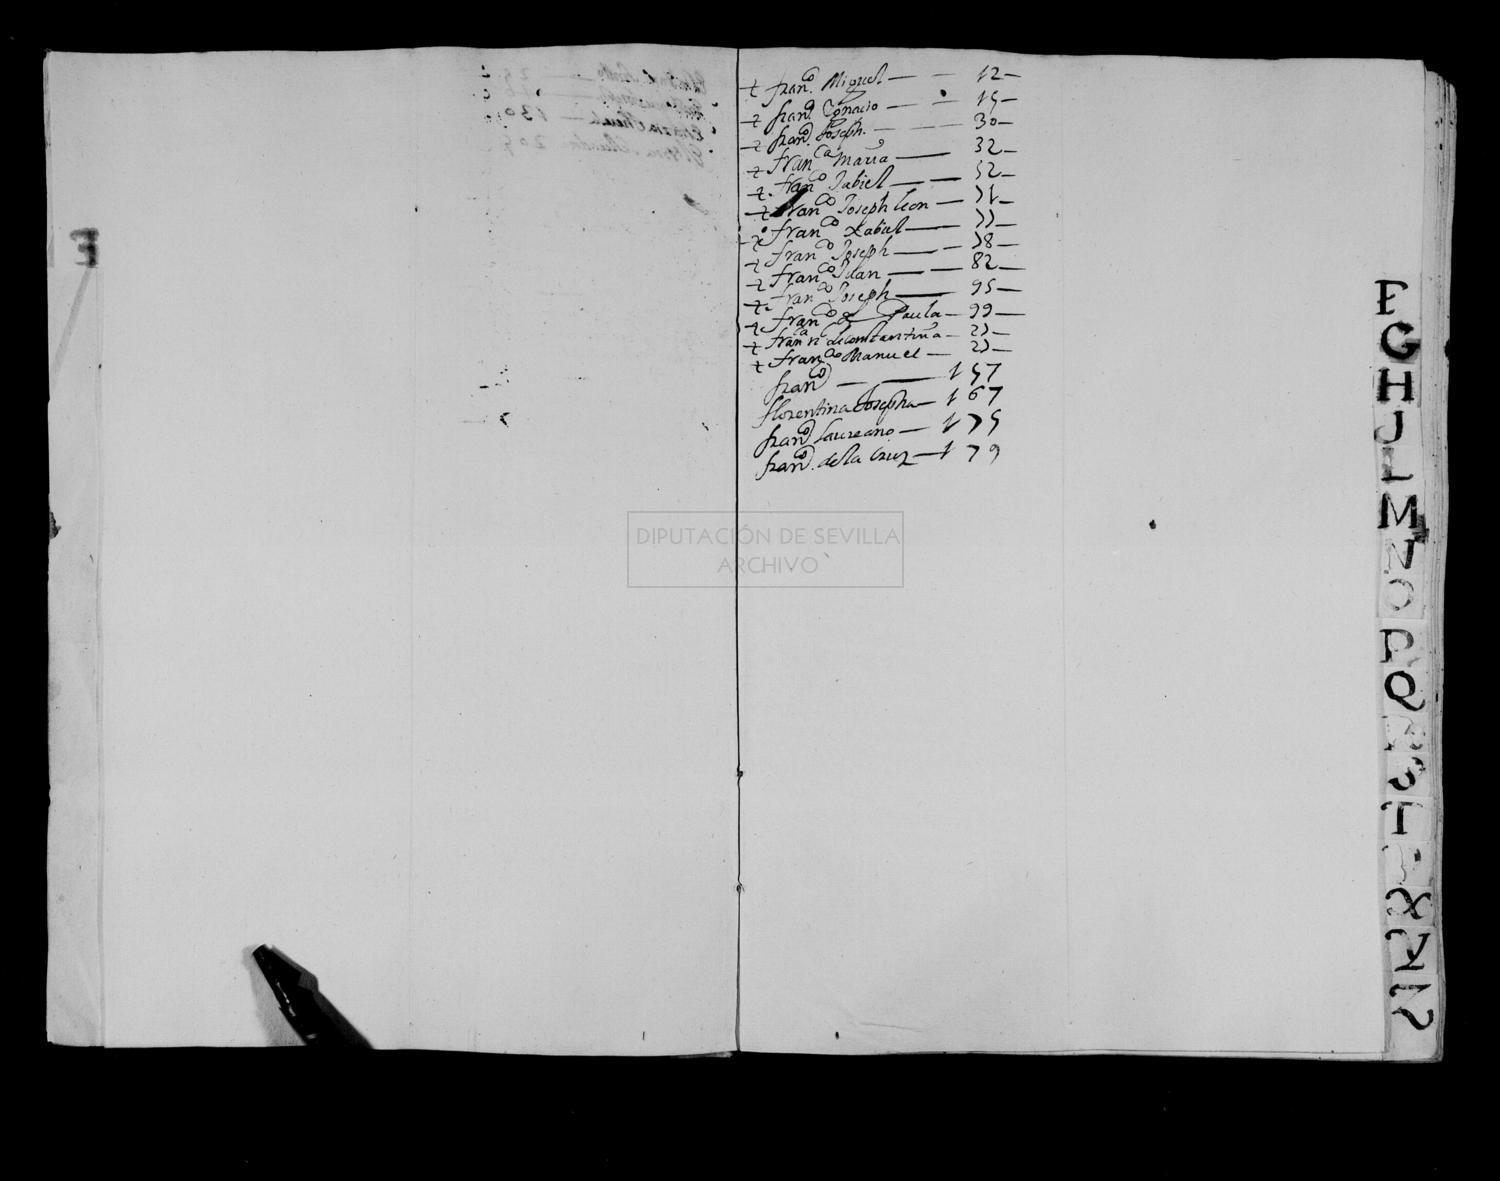 E
+ fran.co Miguel — — 12 —
+ fran.co Ygnacio — — 15 —
+ fran.co Joseph. — — 30 —
+ fran.ca Maria — 32 —
+ fran.co Jabiel — — 52 —
+ fran.co Joseph leon — 71 —
+ fran.co Xabiel — 77 —
+ fran.co Joseph — 78 —
+ fran.co Juan — — 82 —
+ fran.co Joseph — 95 —
+ fran.co de Paula — 99 —
+ fran.ca de Constantina — 27 —
+ fran.co Manuel — 27 —
fran.co — — 157
florentina Josepha — 167
fran.co laureano — 175
fran.co de la Cruz — 179
DIPUTACIÓN DE SEVILLA
ARCHIVO
F
G
H
J
L
M
N
O
P
Q
S
T
X
Y
Z